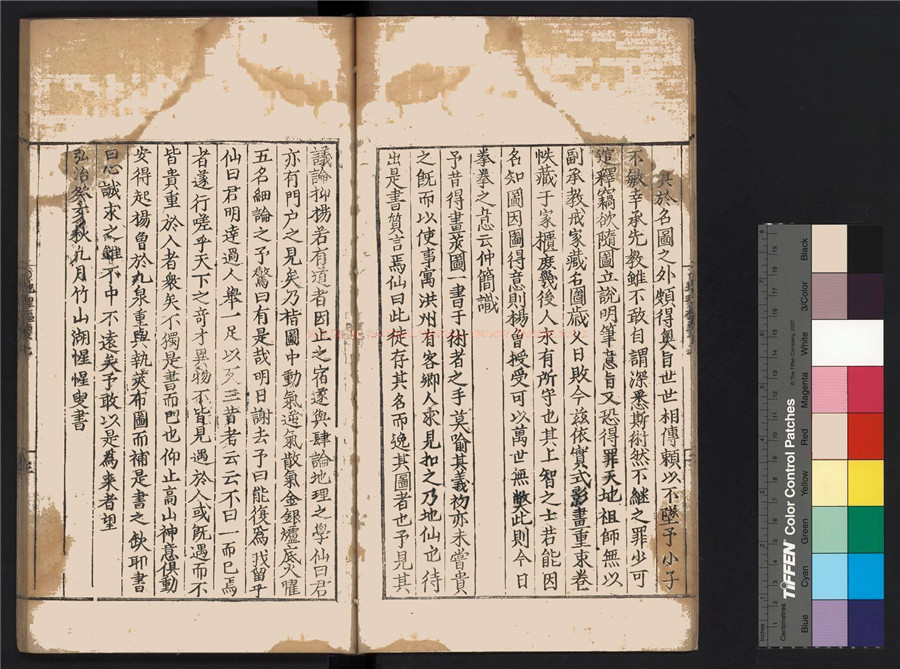 其於名圖之外頗得奧旨世世相傳賴以不墜予小子
不敏幸承先教雖不敢自謂深悉斯術然不継之罪少可
逭釋竊欲隨圖立說明筆意旨又恐得罪天地祖師無以
副承教戒家藏名圖歲久日敗今茲依實式影畫重束卷
帙藏于家櫃庶幾後人永有所守也其上智之士若能因
名知圖因圖得意則楊曾授受可以萬世無獘此則今日
拳拳之意云仲簡識
予昔得畫莢圖一書于術者之手莫喻其義初亦未嘗貴
之旣而以使事寓洪州有客鄉人求見扣之乃地仙也待
出是書質言焉仙曰此徒存其名而逸其圖者也予見其
議論抑揚若有道者因止之宿遂與肆論地理之學仙曰君
亦有門户之見矣乃指圖中動氣逆氣散氣金銀爐底火曜
五名細論之予驚曰有是哉明日謝去予曰能復爲我留乎
仙曰君明達過人舉一足以反三昔者云云不曰一而已焉
者遂行嗟乎天下之竒才異物不皆見遇於人或旣遇而不
皆貴重於人者衆矣不獨是書而巳也仰止高山神意俱動
安得起揚曾於九泉重與執莢布圖而補是書之缺耶書
曰心誠求之雖不中不遠矣予敢以是爲来者望
弘治癸亥秋九月竹山湖惺惺叟書
TIFFEN Color Control Patches
© The Tiffen Company, 2007
Inches
Centimetres
Blue
Cyan
Green
Yellow
Red
Magenta
White
3/Color
Black